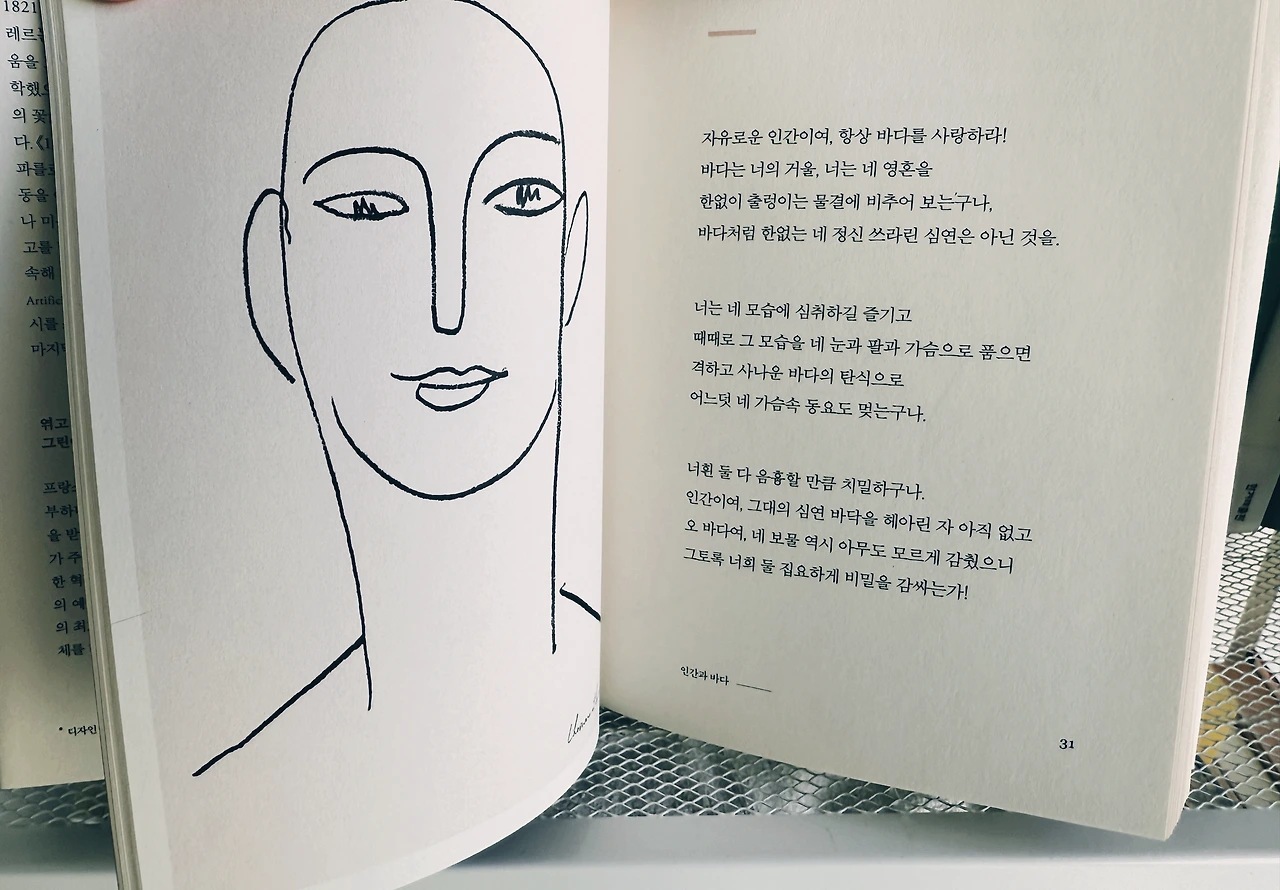 1821
레르
움을
학했
의 꽃
다.
파를
동을
나 마
고를
속해
Artific
시를
마지
엮고
그린
프랑
부하
을 받
가 주
한 혁
의 예
의 최
체를
* 디자인
자유로운 인간이여, 항상 바다를 사랑하라!
바다는 너의 거울, 너는 네 영혼을
한없이 출렁이는 물결에 비추어 보는구나,
바다처럼 한없는 네 정신 쓰라린 심연은 아닌 것을.
너는 네 모습에 심취하길 즐기고
때때로 그 모습을 네 눈과 팔과 가슴으로 품으면
격하고 사나운 바다의 탄식으로
어느덧 네 가슴속 동요도 멎는구나.
너흰 둘 다 음흉할 만큼 치밀하구나.
인간이여, 그대의 심연 바닥을 헤아린 자 아직 없고
오 바다여, 네 보물 역시 아무도 모르게 감췄으니
그토록 너희 둘 집요하게 비밀을 감싸는가!
인간과 바다
31